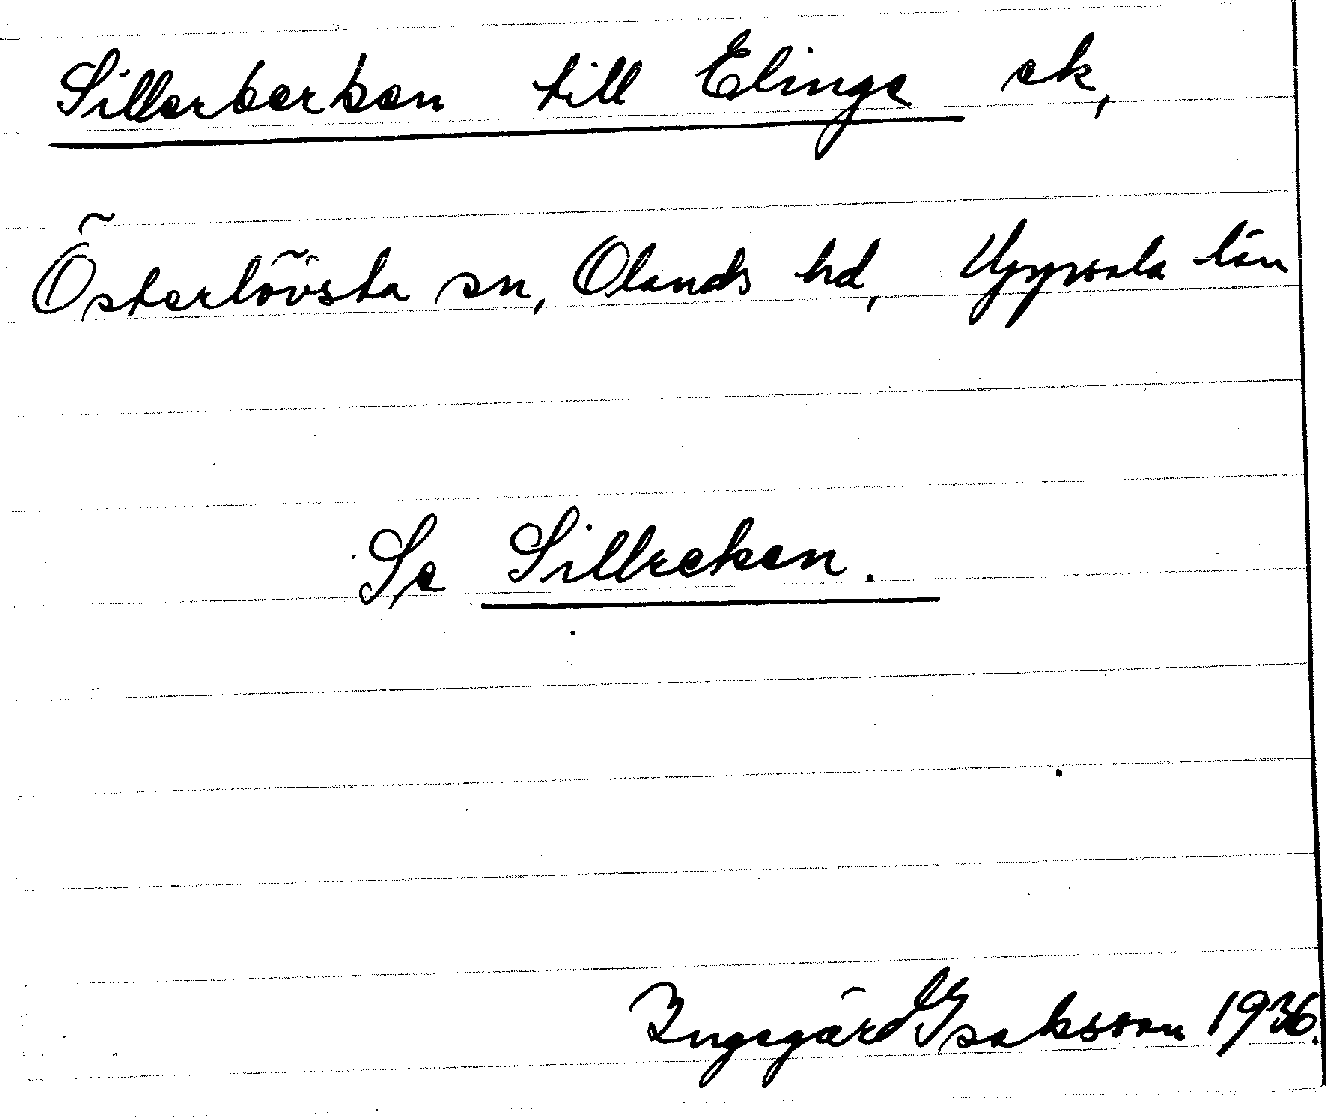 Sillerberken till Elinge ek,
Österlövsta sn, Olands hd, Uppsala län
Se Sillreken.
Ingegärd Isaksson 1936.